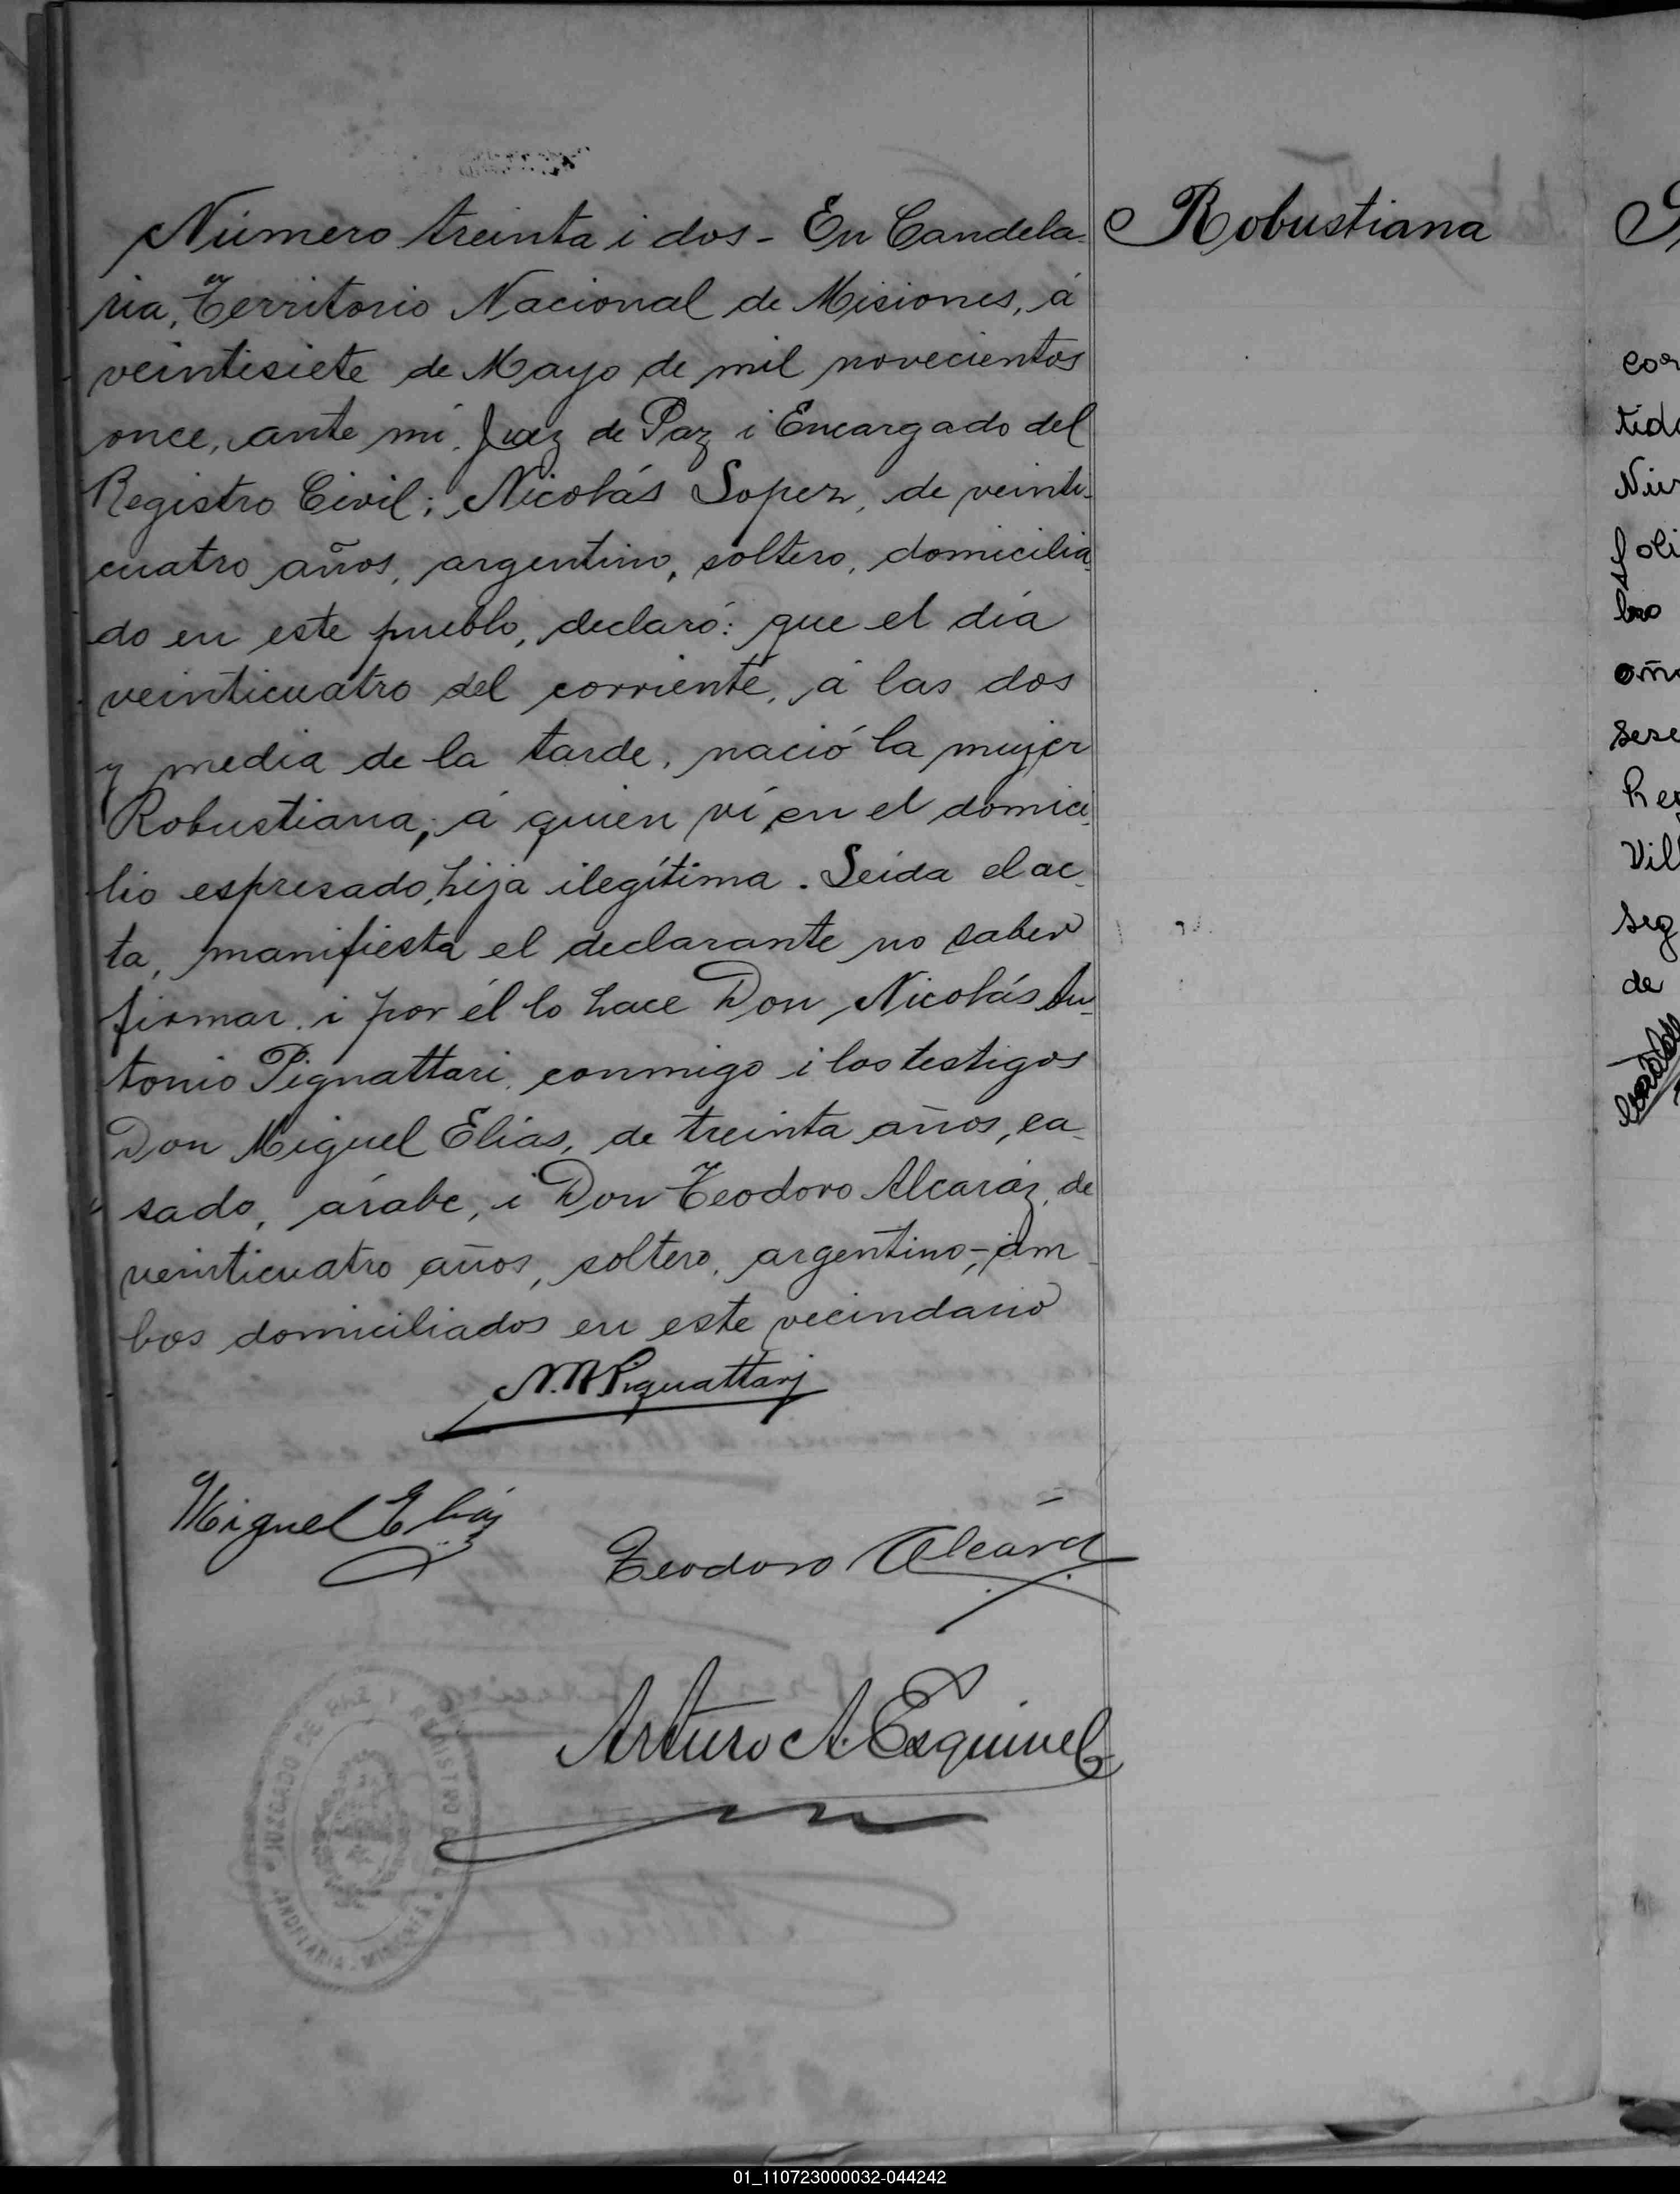 Número treinta i dos - En Candela-
ria, Territorio Nacional de Misiones, á
veintisiete de Mayo de mil novecientos
once, ante mi, Juez de Paz i Encargado del
Registro Civil; Nicolás Lopez, de veinti-
cuatro años, argentino, soltero, domicilia-
do en este pueblo, declaró: que el día
veinticuatro del corriente, á las dos
y media de la tarde, nació la mujer
Robustiana, á quien ví en el domici-
lio espresado, hija ilegítima. Leida el ac-
ta, manifiesta el declarante no saber
firmar i por él lo hace Don Nicolás An-
tonio Pignattari, conmigo i los testigos
Don Miguel Elias, de treinta años, ca-
sado, árabe, i Don Teodoro Alcaráz, de
veinticuatro años, soltero, argentino, am-
bos domiciliados en este vecindario
N. A. Pignattari
Miguel Elias
Teodoro Alcara
Arturo A. Esquivel
JUZGADO DE PAZ Y REGISTRO CIVIL
CANDELARIA - MISIONES
Robustiana
cor
tid
Nú
foli
bro
año
sese
Reg
Vill
seg
de
01_110723000032-044242